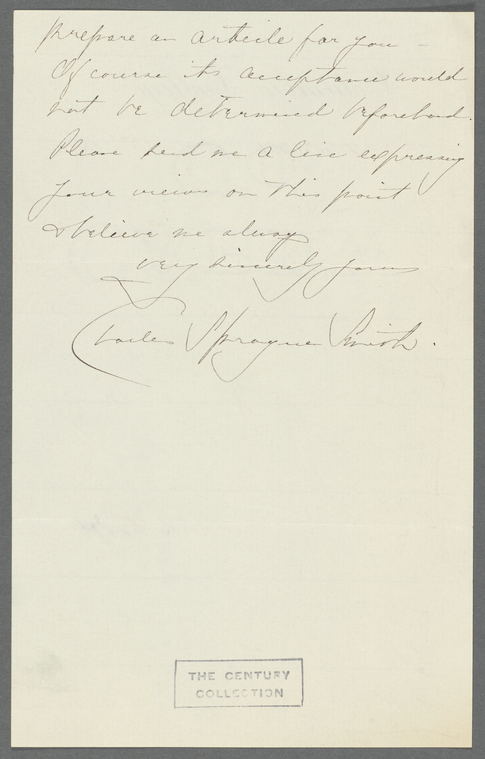 prepare an article for you –
Of course its acceptance would
not be determined beforehand.
Please send me a line expressing
your views on this point
& believe me always
very sincerely yours
Charles Sprague Smith.
THE CENTURY
COLLECTION